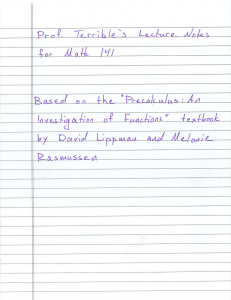 Prof Terrible's Lecture Notes
for Math 141
Based on the "Precalculus: An
Investigation of Functions" textbook
by David Lippman and Melonie
Rasmussen